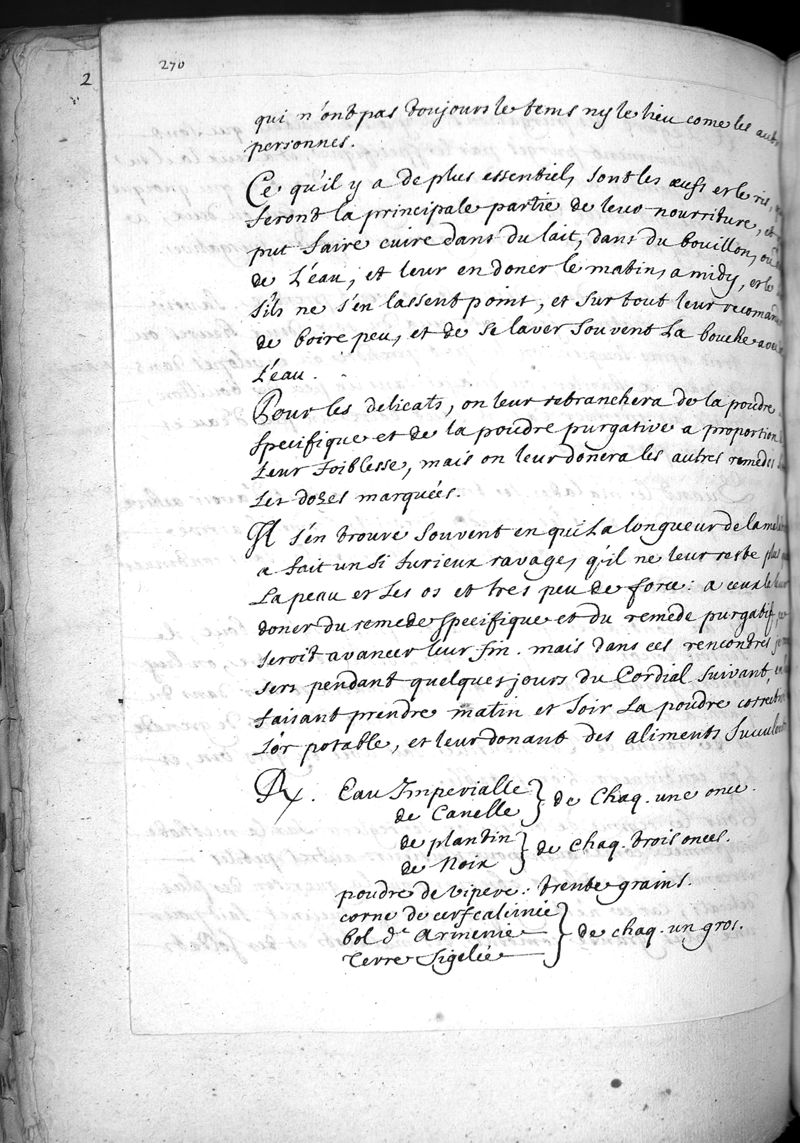 270
2
qui n'ont pas toujours le tems ny le lieu come les autr
personnes.
Ce qu'il y a de plus essentiel, sont les œufs et le ris,
seront la principale partie de leur nourriture, et
put faire cuire dans du lait, dans du bouillon, ou
de L'eau, et leur en doner le matin, a midy, et le
s'ils ne s'en lassent point, et sur tout leur recomand
de boire peu, et de se laver souvent La bouche avec
L'eau.
Pour les delicats, on leur retranchera de la poudre
specifique et de la poudre purgative a proportion
Leur foiblesse, mais on leur donera les autres remedes
Les dozes marquées.
Il s'en trouve souvent en qui La longueur de la mal
a fait un si furieux ravage, q'il ne leur reste plus
La peau et Les os et tres peu de force: a ceux le leur
doner du remede specifique et du remede purgatif
seroit avancer leur fin. mais dans ces rencontres
sers pendant quelques jours du Cordial suivant, en
faisant prendre matin et soir La poudre correct
L'or potable, et leur donant des aliments succulents
℞. Eau Imperialle
de Canelle } de Chaq. une once.
de plantin
de Noix } de chaq. trois onces.
poudre de vipere: trente grains.
corne de cerf calcinée
bol d'Armenie
Terre Sigelée } de chaq. un gros.